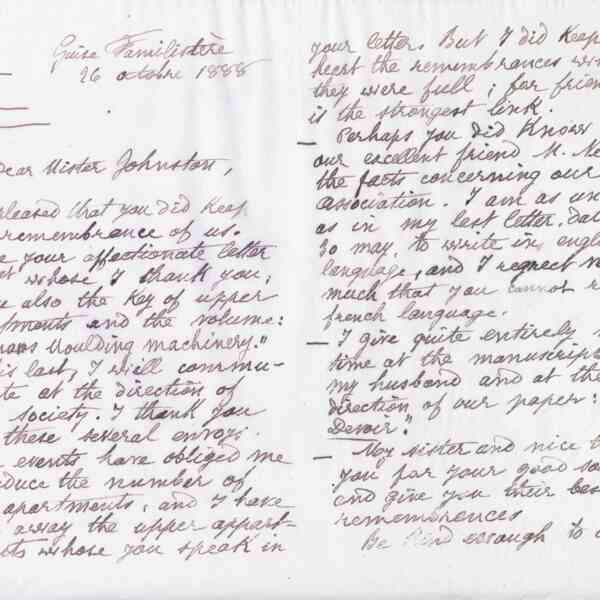 Guise Familistère
26 octobre 1888
dear Mister Johnston,
pleased that you did keep
remembrance of us.
your affectionate letter
whose I thank you;
also the key of upper
and the volume:
Moulding machinery."
is last, I will commu-
at the direction of
society. I thank you
these several envoys.
events have obliged me
the number of
apartments, and I have
away the upper appart-
whose you speak in
your letter. But I did keep
the remembrances
they were full; for
is the strongest link.
— Perhaps you did know
our excellent friend M. Ne
the facts concerning our
association. I am as
as in my last letter, dat
30 may, to write in engl
language, and I regret
much that you cannot r
french language.
— I give quite entirely
time at the manuscript
my husband and at the
direction of our paper:
Devoir."
— My sister and nice
you for your good
and give you their bes
remembrances
Be kind enough to